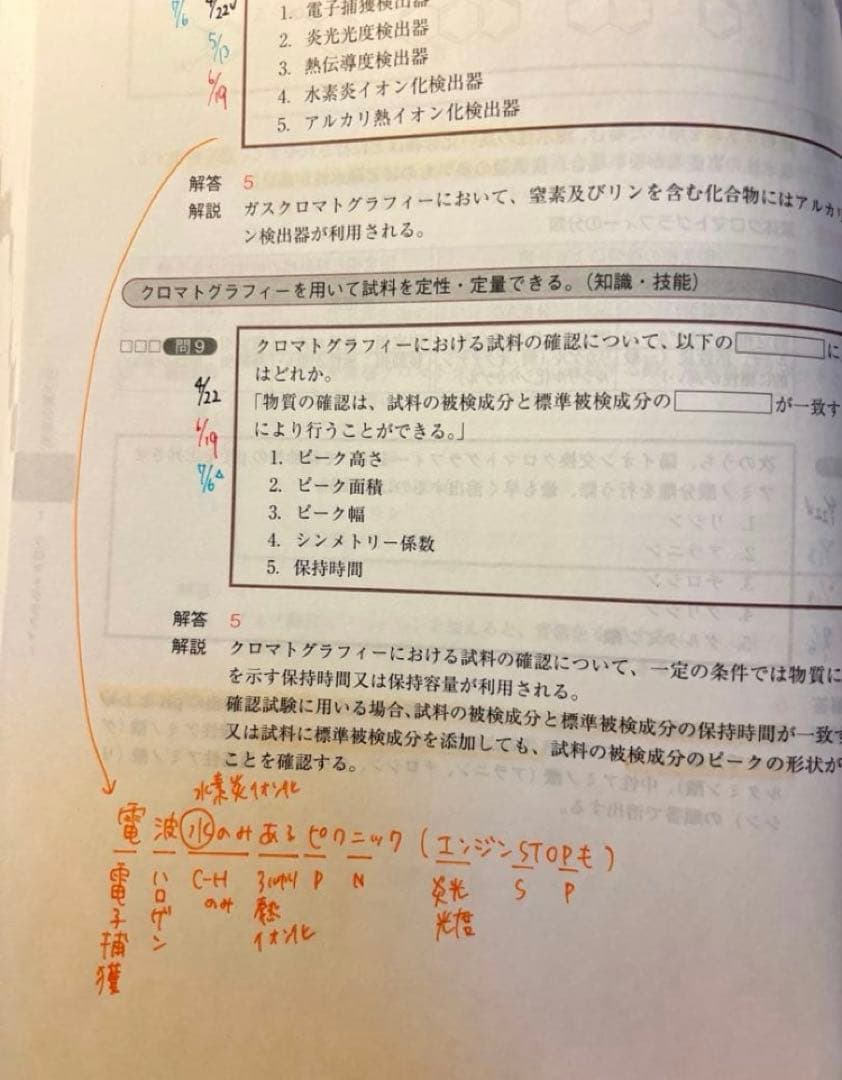 7/6 4/22
5/13
6/19
1. 電子捕獲検出器
2. 炎光光度検出器
3. 熱伝導度検出器
4. 水素炎イオン化検出器
5. アルカリ熱イオン化検出器
解答 5
解説 ガスクロマトグラフィーにおいて、窒素及びリンを含む化合物にはアルカリ
ン検出器が利用される。
クロマトグラフィーを用いて試料を定性・定量できる。(知識・技能)
□□□ 問9 クロマトグラフィーにおける試料の確認について、以下の に
はどれか。
4/22
6/19
7/6 △
「物質の確認は、試料の被検成分と標準被検成分の が一致す
により行うことができる。」
1. ピーク高さ
2. ピーク面積
3. ピーク幅
4. シンメトリー係数
5. 保持時間
解答 5
解説 クロマトグラフィーにおける試料の確認について、一定の条件では物質に
を示す保持時間又は保持容量が利用される。
確認試験に用いる場合、試料の被検成分と標準被検成分の保持時間が一致す
又は試料に標準被検成分を添加しても、試料の被検成分のピークの形状が
ことを確認する。
水素炎イオン化
電波水のみあるピクニック(エンジンSTOPも)
電子捕獲
ハロゲン
C-H のみ
アルカリ 熱 イオン化
P
N
炎光 光度
S
P